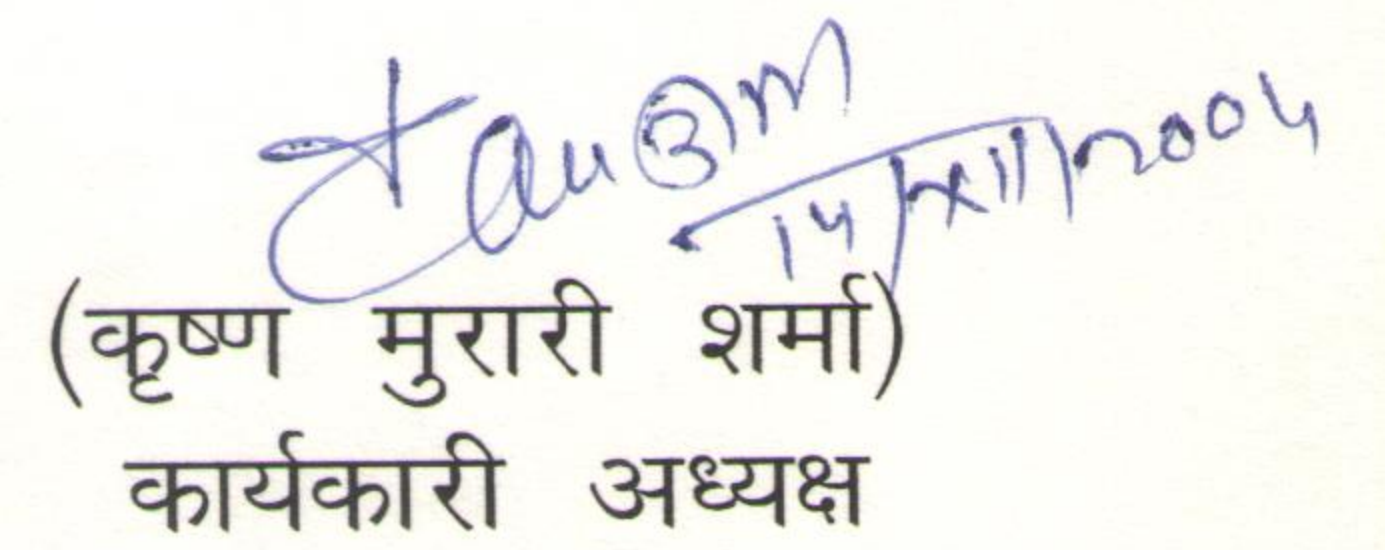 14/XII/2004
(कृष्ण मुरारी शर्मा)
कार्यकारी अध्यक्ष